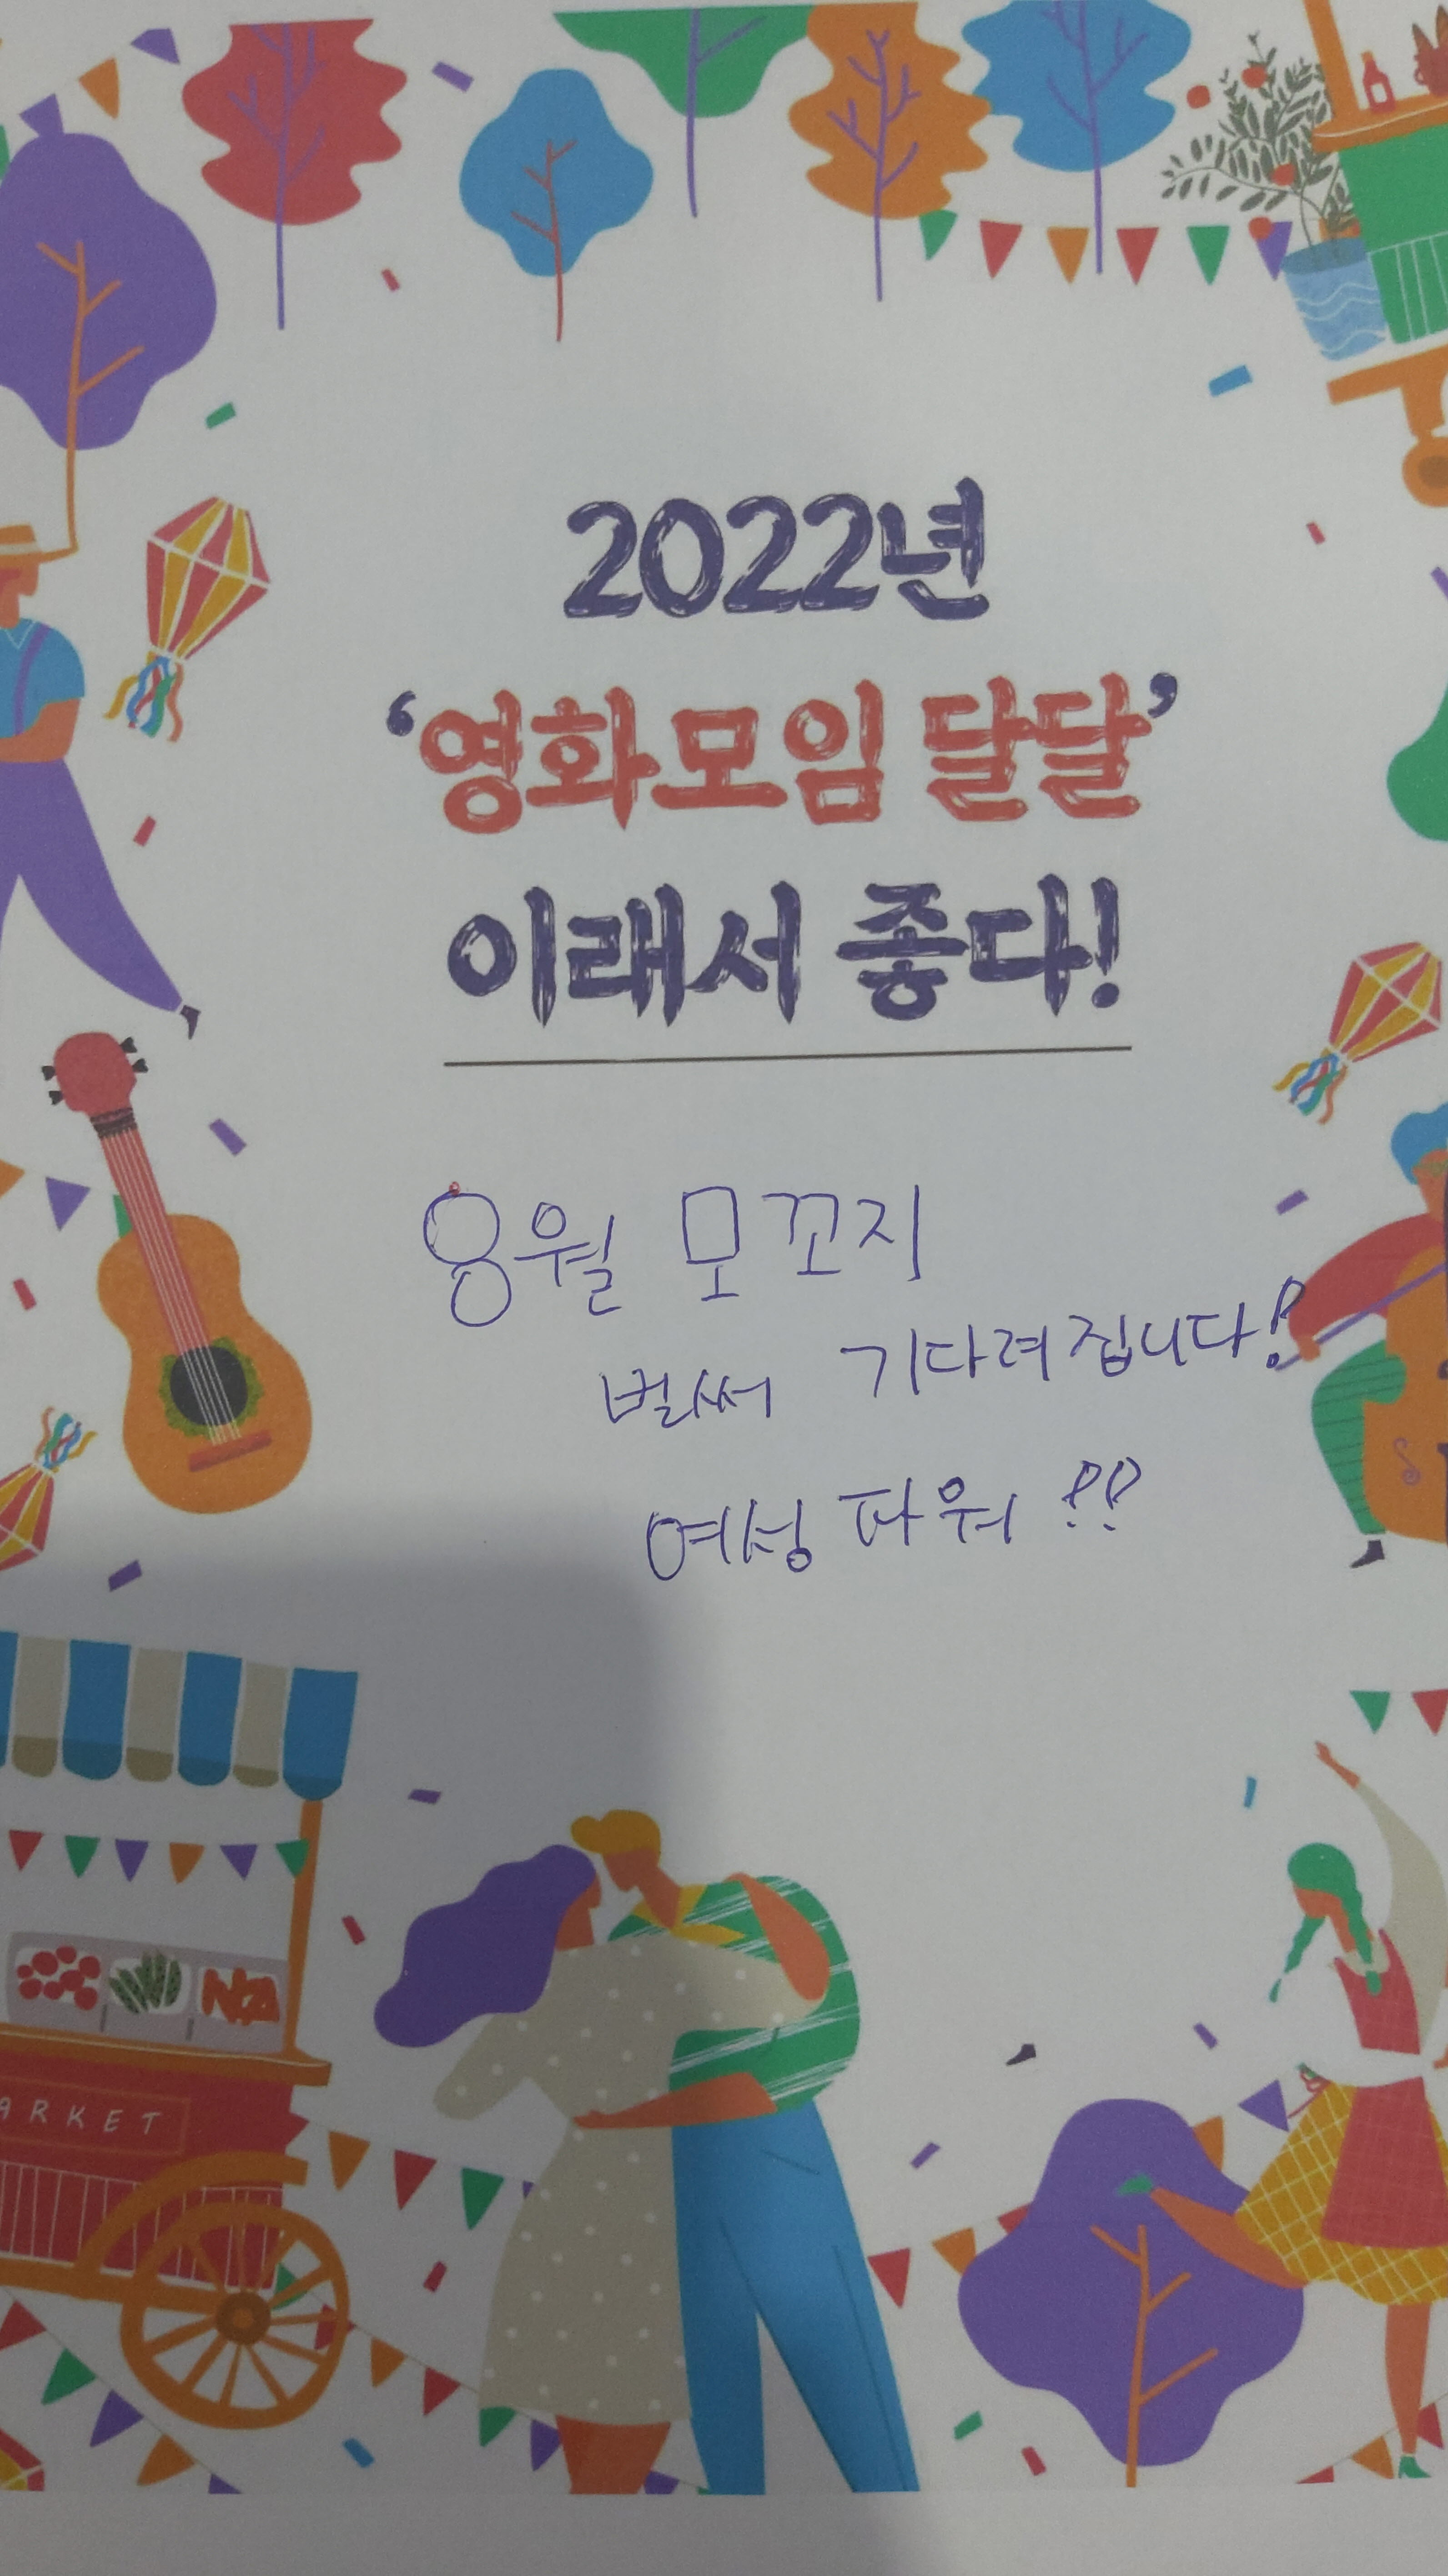 2022년
‘영화모임 달달’
이래서 좋다!
8월 모꼬지
벌써 기다려집니다!
여성 파워!!
ARKET